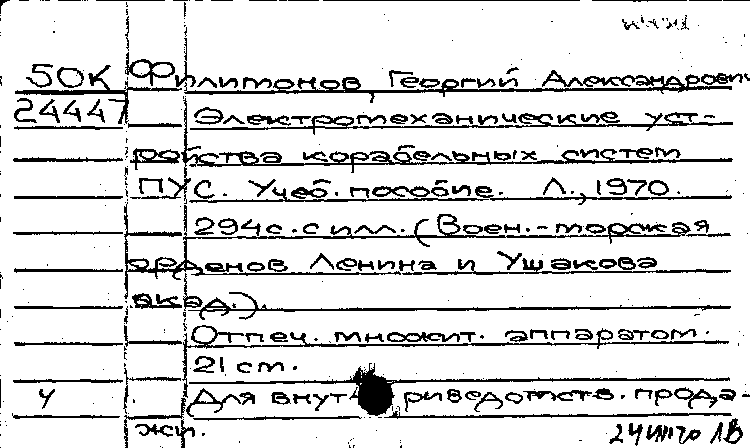 50К Филимонов, Георгий Александрович
24447 Электромеханические уст-
ройства корабельных систем
ПУС. Учеб. пособие. Л., 1970.
294с. с илл. (Воен.-морская
орденов Ленина и Ушакова
акад.).
Отпеч. множит. аппаратом.
21 см.
Ч Для внутриведомств. прода-
жи.